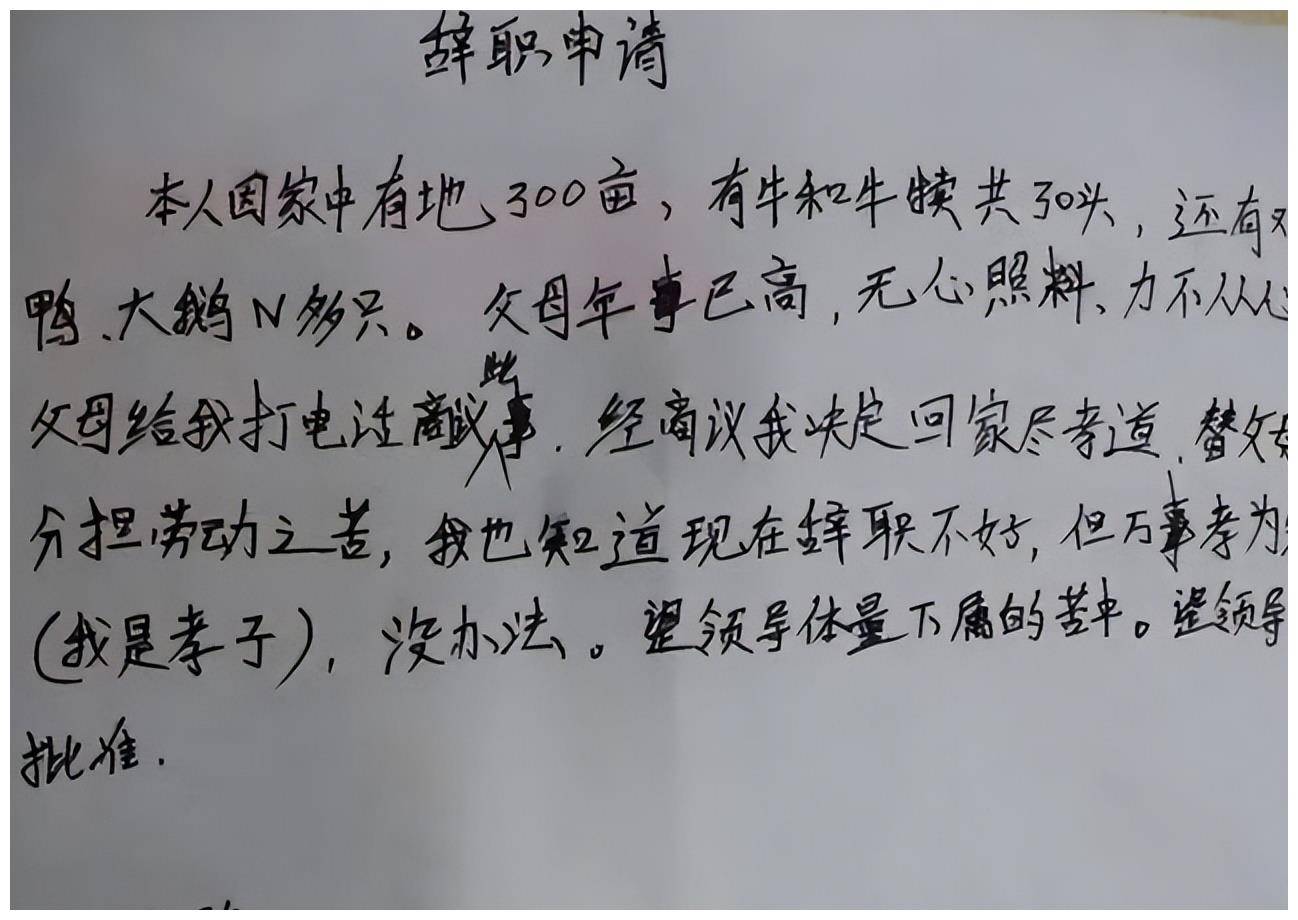 辞职申请
本人因家中有地300亩，有牛和牛犊共30头，还有
鸭、大鹅N多只。父母年事已高，无心照料、力不从心
父母给我打电话商议此事．经商议我决定回家尽孝道．替父母
分担劳动之苦，我也知道现在辞职不好，但万事孝为
（我是孝子），没办法。望领导体量下属的苦中。望领导
批准．